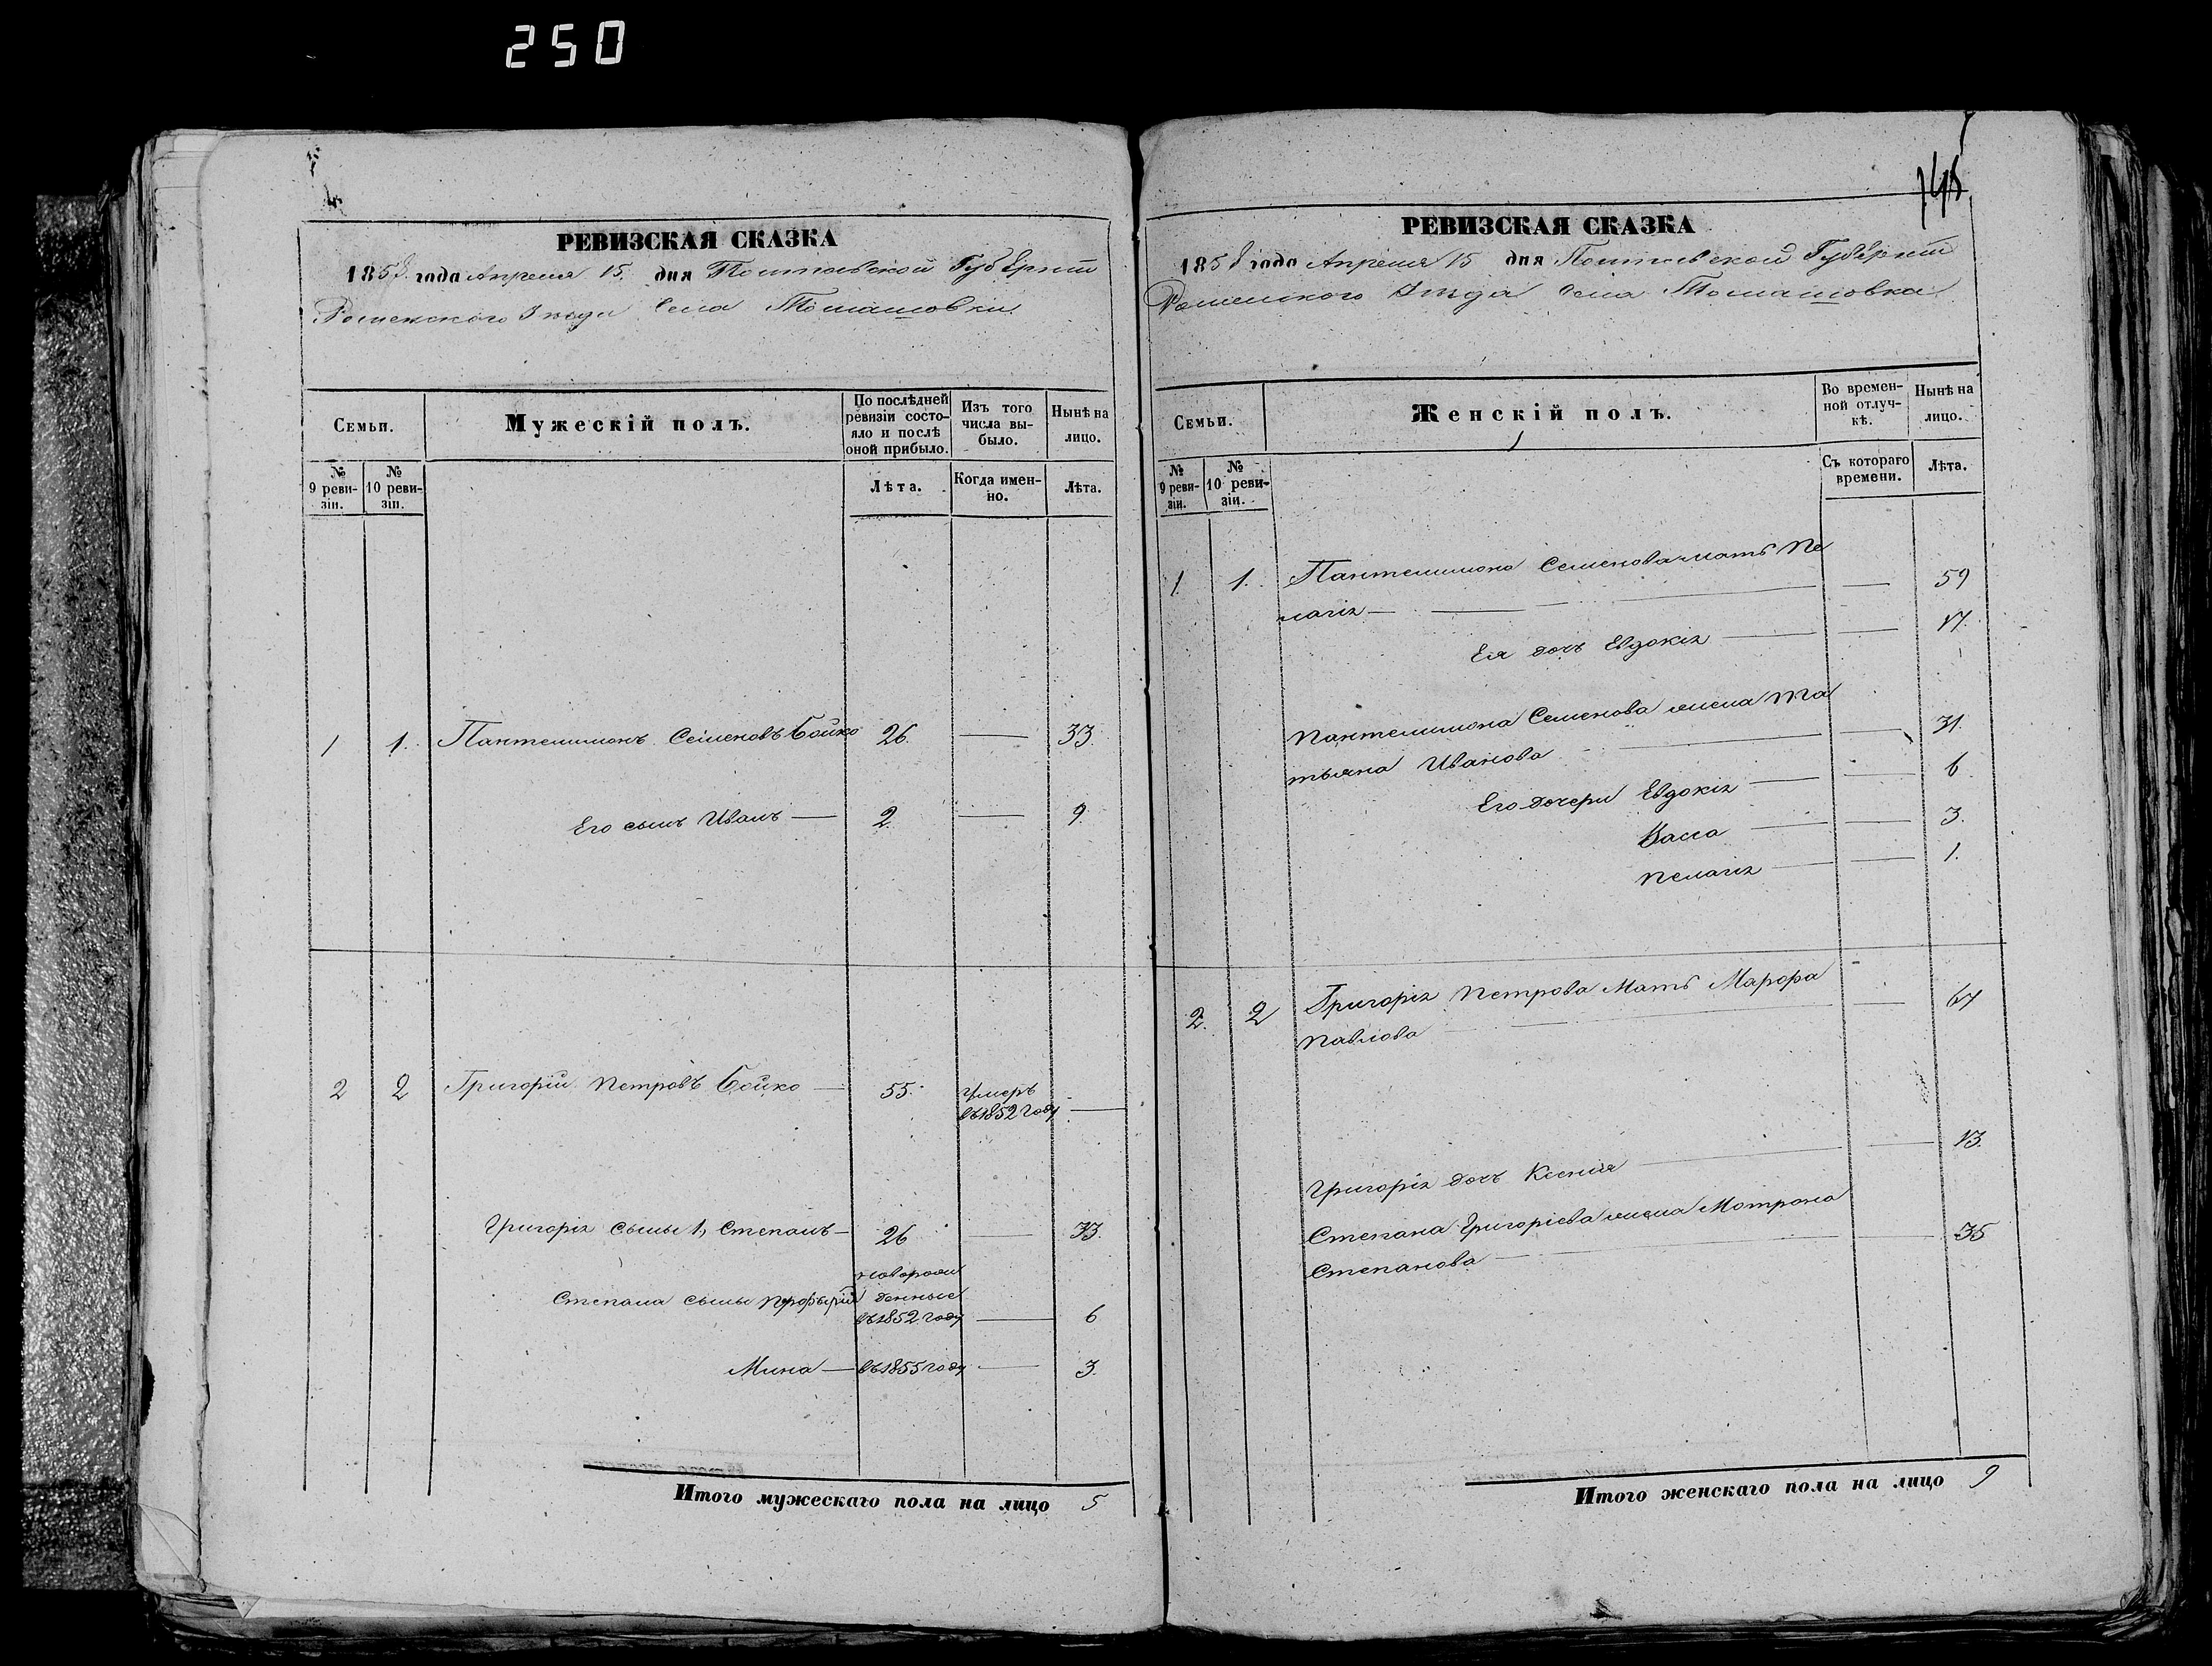 250
РЕВИЗСКАЯ СКАЗКА
1858 года Апреля 15 дня Полтавской Губерніи
Роменского Уезда Села Томашовки
Семьи.
Мужескій полъ.
По послѣдней ревизіи состояло и послѣ оной прибыло.
Изъ того числа выбыло.
Нынѣ на лицо.
№ 9 ревизіи.
№ 10 ревизіи.
Лѣта.
Когда именно.
Лѣта.
1 1. Пантелимонъ Семеновъ Бойко 26. — 33.
Его сынъ Иванъ — 2. — 9.
2 2 Григорій Петровъ Бойко — 55. умеръ
въ 1852 году —
Григорія сыны 1, Степанъ — 26 — 33.
новорож
Степана сыны денные
въ 1852 году — 6
Мина — въ 1855 году — 3.
Итого мужескаго пола на лицо 5
РЕВИЗСКАЯ СКАЗКА
1858 года Апреля 15 дня Полтавской Губерніи
Роменского Уезда Села Томашовки
Семьи.
Женскій полъ.
Во временной отлучкѣ.
Нынѣ на лицо.
№ 9 ревизіи.
№ 10 ревизіи.
Съ котораго времени.
Лѣта.
1. 1. Пантелимона Семенова мать Пе
лагія — — 59
Ея дочь Евдокія — — 17.
Пантелимона Семенова жена Та
тьяна Иванова — — 31.
Его дочери Евдокія — — 6.
Васса — — 3.
Пелагія — — 1.
2. 2 Григорія Петрова Мать Марфа
Павлова — — 67
Григорія дочь Ксенія — — 13.
Степана Григоріева жена Мотрона
Степанова — — 35
Итого женскаго пола на лицо 9